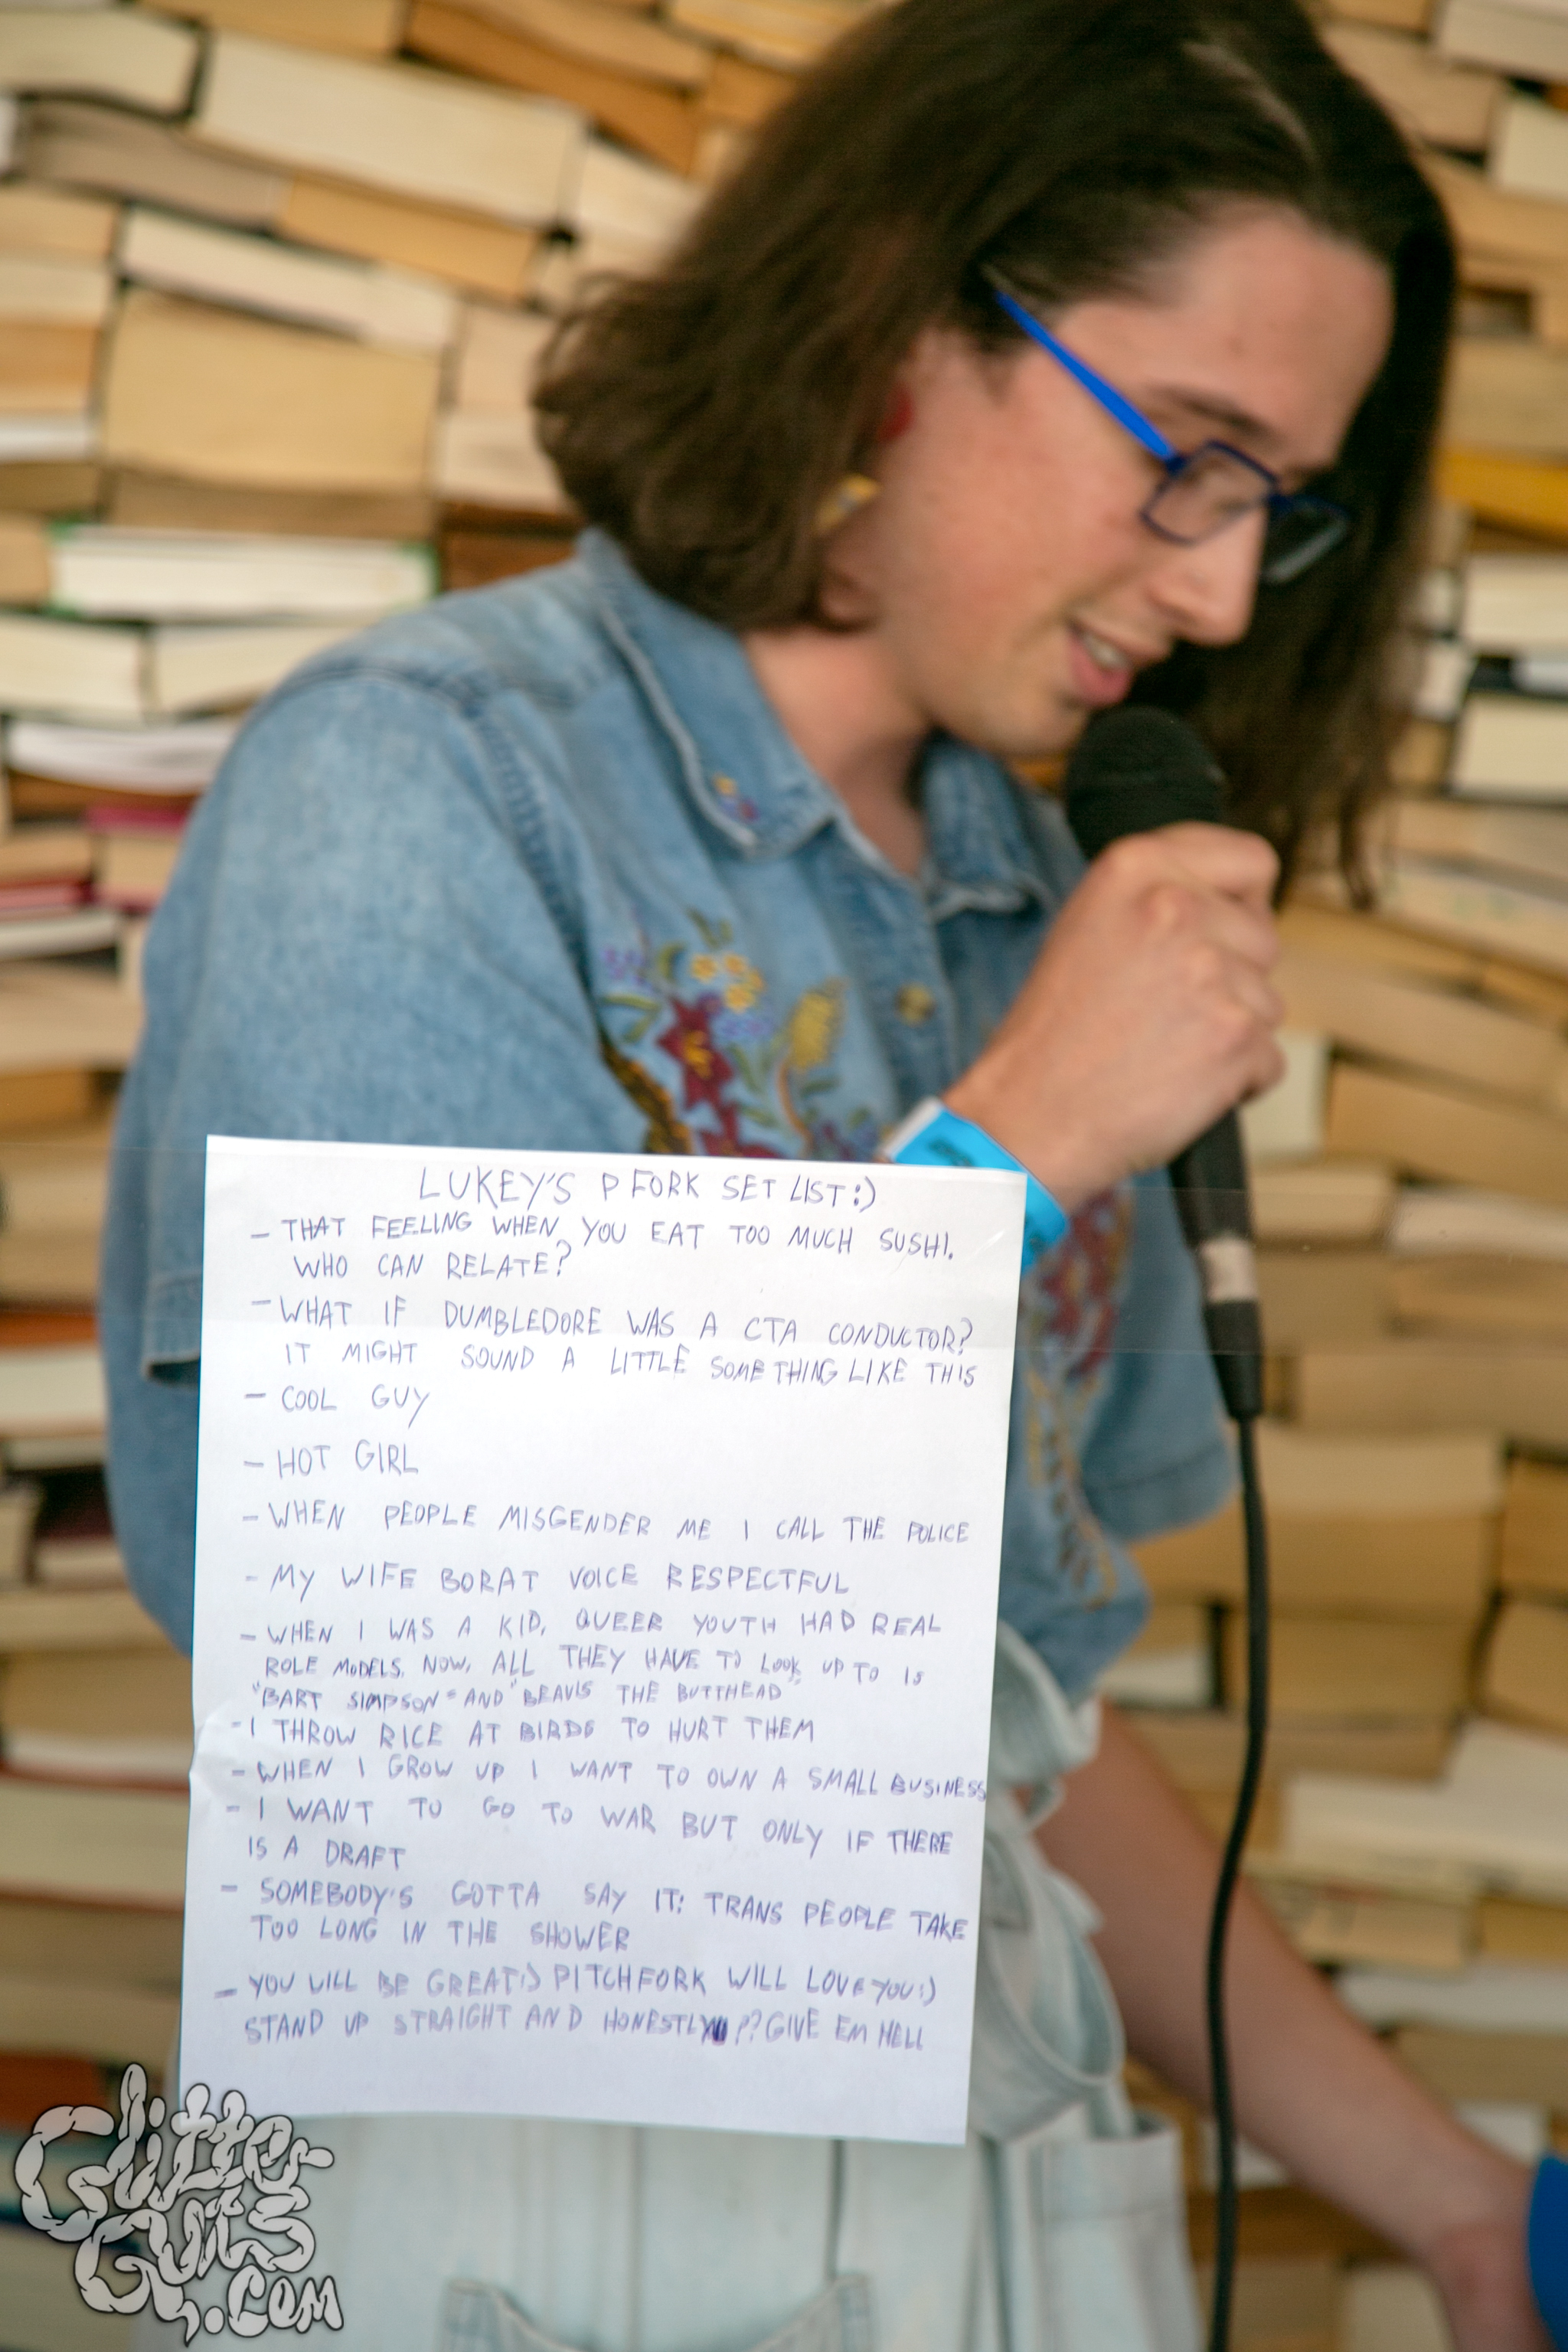 LUKEY'S P FORK SET LIST :)
- THAT FEELING WHEN YOU EAT TOO MUCH SUSHI.
WHO CAN RELATE?
- WHAT IF DUMBLEDORE WAS A CTA CONDUCTOR?
IT MIGHT SOUND A LITTLE SOMETHING LIKE THIS
- COOL GUY
- HOT GIRL
- WHEN PEOPLE MISGENDER ME I CALL THE POLICE
- MY WIFE BORAT VOICE RESPECTFUL
- WHEN I WAS A KID, QUEER YOUTH HAD REAL
ROLE MODELS. NOW, ALL THEY HAVE TO LOOK UP TO IS
"BART SIMPSON" AND "BEAVIS THE BUTTHEAD"
- I THROW RICE AT BIRDS TO HURT THEM
- WHEN I GROW UP I WANT TO OWN A SMALL BUSINESS
- I WANT TO GO TO WAR BUT ONLY IF THERE
IS A DRAFT
- SOMEBODY'S GOTTA SAY IT: TRANS PEOPLE TAKE
TOO LONG IN THE SHOWER
- YOU WILL BE GREAT :) PITCHFORK WILL LOVE YOU :)
STAND UP STRAIGHT AND HONESTLY ?? GIVE EM HELL
Glitter
Guts
.com